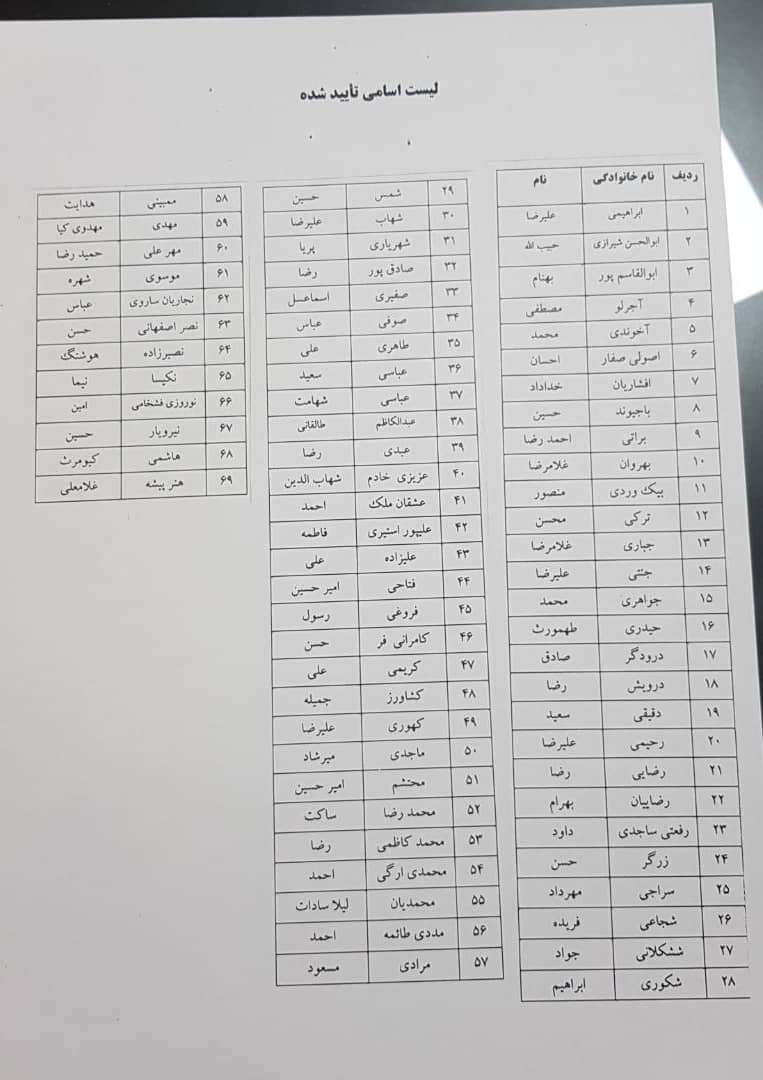 لیست اسامی تأیید شده
ردیف نام خانوادگی نام
۱ ابراهیمی علیرضا
۲ ابوالحسن شیرازی حبیب الله
۳ ابوالقاسم پور بهنام
۴ آجرلو مصطفی
۵ آخوندی محمد
۶ اصولی صفار احسان
۷ افشاریان خداداد
۸ باجیوند حسین
۹ براتی احمد رضا
۱۰ بهروان غلامرضا
۱۱ بیک وردی منصور
۱۲ ترکی محسن
۱۳ جباری غلامرضا
۱۴ جنتی علیرضا
۱۵ جواهری محمد
۱۶ حیدری طهمورث
۱۷ درودگر صادق
۱۸ درویش رضا
۱۹ دقیقی سعید
۲۰ رحیمی علیرضا
۲۱ رضایی رضا
۲۲ رضاییان بهرام
۲۳ رفعتی ساجدی داود
۲۴ زرگر حسن
۲۵ سراجی مهرداد
۲۶ شجاعی فریده
۲۷ ششکلانی جواد
۲۸ شکوری ابراهیم
۲۹ شمس حسین
۳۰ شهاب علیرضا
۳۱ شهریاری پریا
۳۲ صادق پور رضا
۳۳ صفیری اسماعیل
۳۴ صوفی عباس
۳۵ طاهری علی
۳۶ عباسی سعید
۳۷ عباسی شهامت
۳۸ عبدالکاظم طالقانی
۳۹ عبدی رضا
۴۰ عزیزی خادم شهاب الدین
۴۱ عشقان ملک احمد
۴۲ علیپور استیری فاطمه
۴۳ علیزاده علی
۴۴ فتاحی امیر حسین
۴۵ فروغی رسول
۴۶ کامرانی فر حسن
۴۷ کریمی علی
۴۸ کشاورز جمیله
۴۹ کهوری علیرضا
۵۰ ماجدی میرشاد
۵۱ محتشم امیر حسین
۵۲ محمد رضا ساکت
۵۳ محمد کاظمی رضا
۵۴ محمدی ارگی احمد
۵۵ محمدیان لیلا سادات
۵۶ مددی طائمه احمد
۵۷ مرادی مسعود
۵۸ ممبینی هدایت
۵۹ مهدی مهدوی کیا
۶۰ مهر علی حمید رضا
۶۱ موسوی شهره
۶۲ نجاریان ساروی عباس
۶۳ نصر اصفهانی حسن
۶۴ نصیرزاده هوشنگ
۶۵ نکیسا نیما
۶۶ نوروزی فشخامی امین
۶۷ نیرویار حسین
۶۸ هاشمی کیومرث
۶۹ هنر پیشه غلامعلی